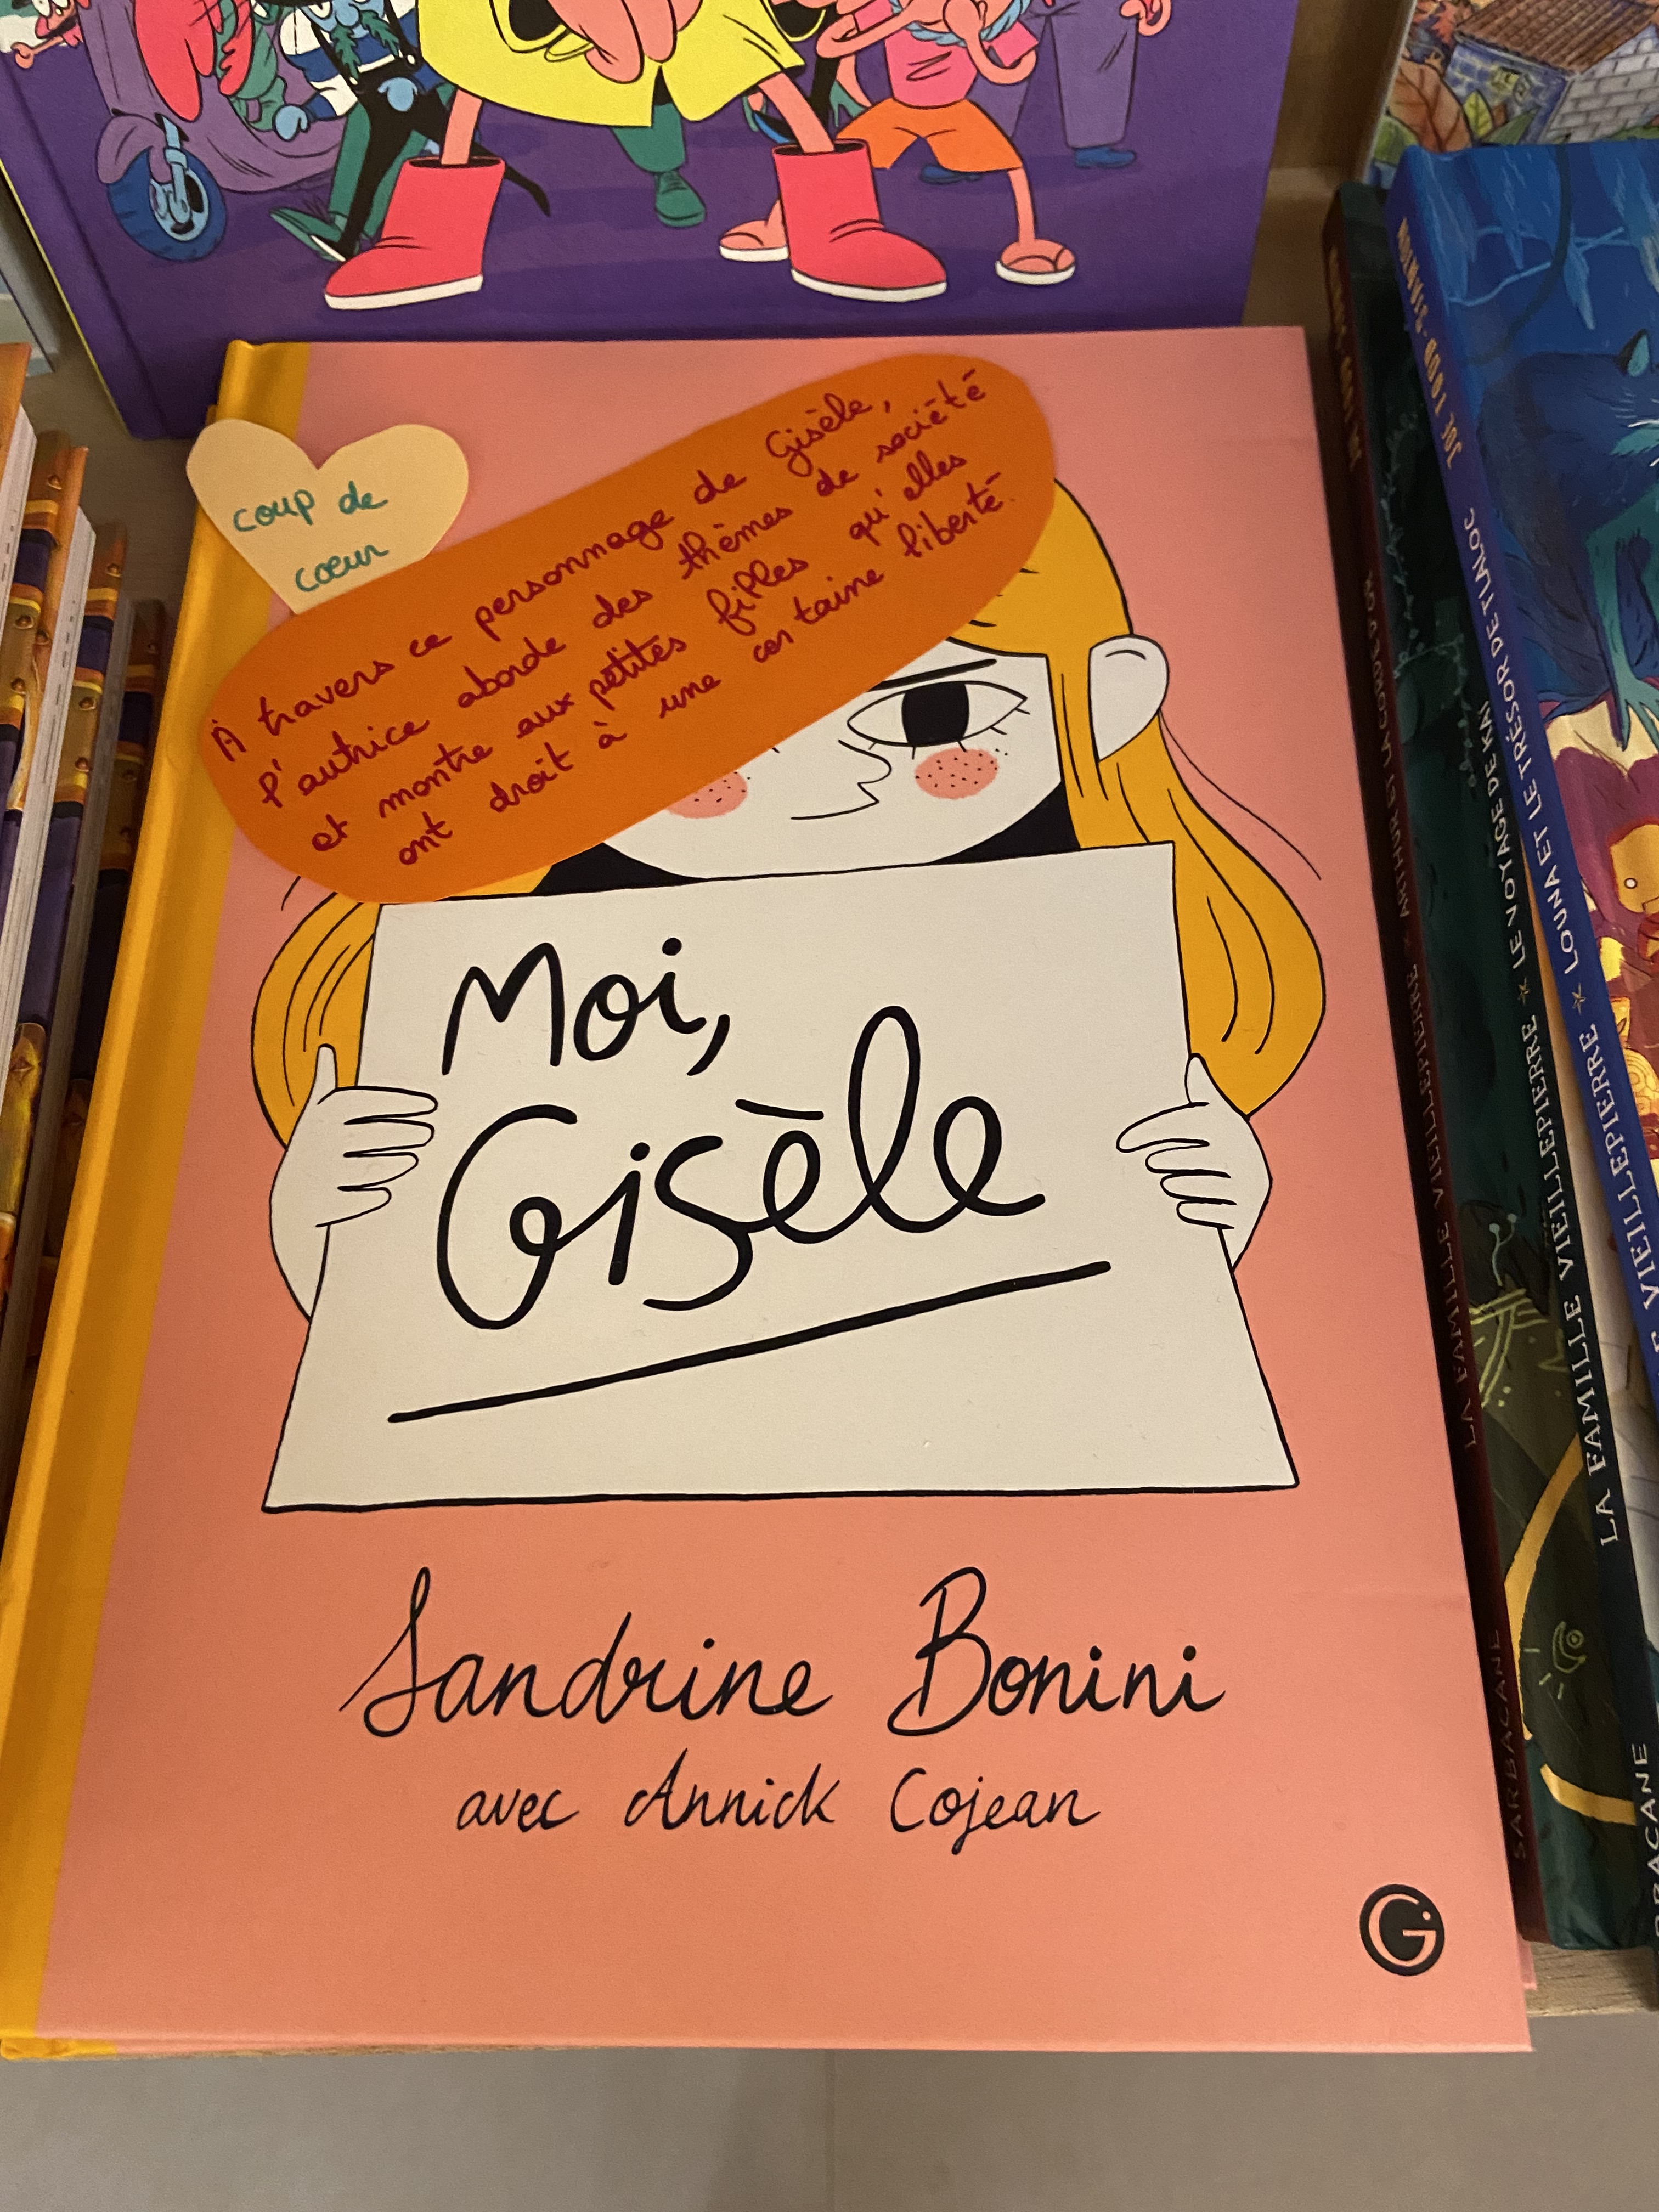 coup de
cœur
À travers ce personnage de Gisèle,
l'autrice aborde des thèmes de société
et montre aux petites filles qu'elles
ont droit à une certaine liberté.
Moi,
Gisèle
Sandrine Bonini
avec Annick Cojean
G
JOE TODD-STANTON
LA FAMILLE VIEILLEPIERRE ★ ARTHUR ET LA CORDE D'OR
SARBACANE
LA FAMILLE VIEILLEPIERRE ★ LE VOYAGE DE KAI
VIEILLEPIERRE ★ LOUNA ET LE TRÉSOR DE TLALOC
JOE TODD-STANTON